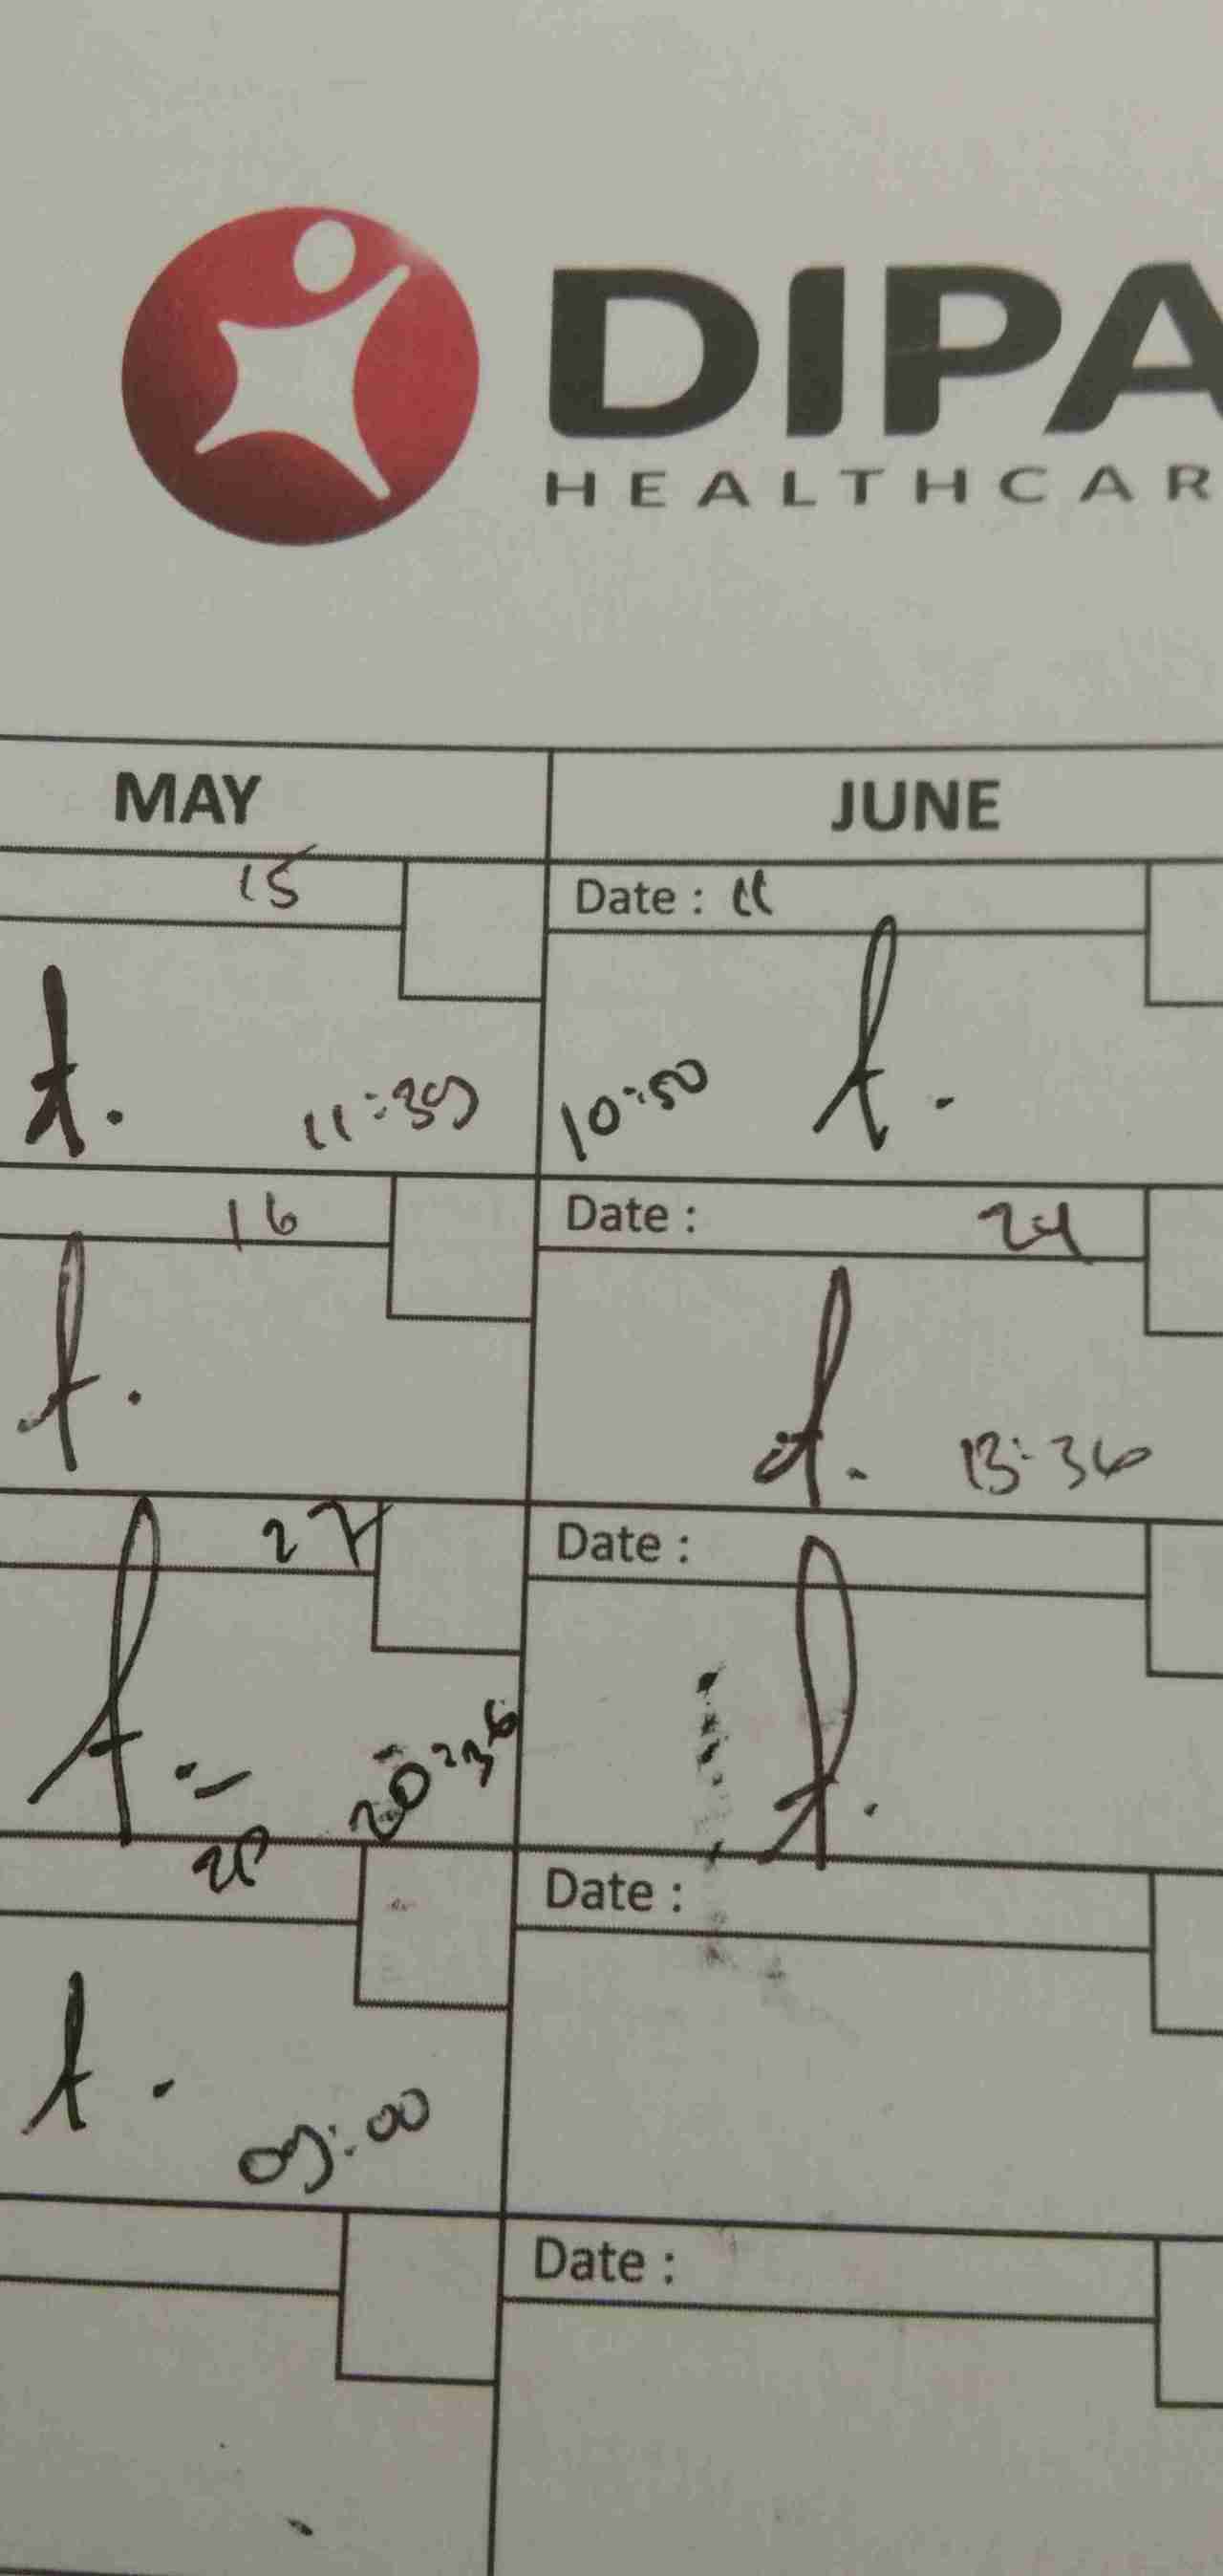 DIPA
HEALTHCAR
MAY
JUNE
15
Date : 11
11:30
10:50
16
Date : 24
13:36
27
Date :
20:36
Date :
09:00
Date :